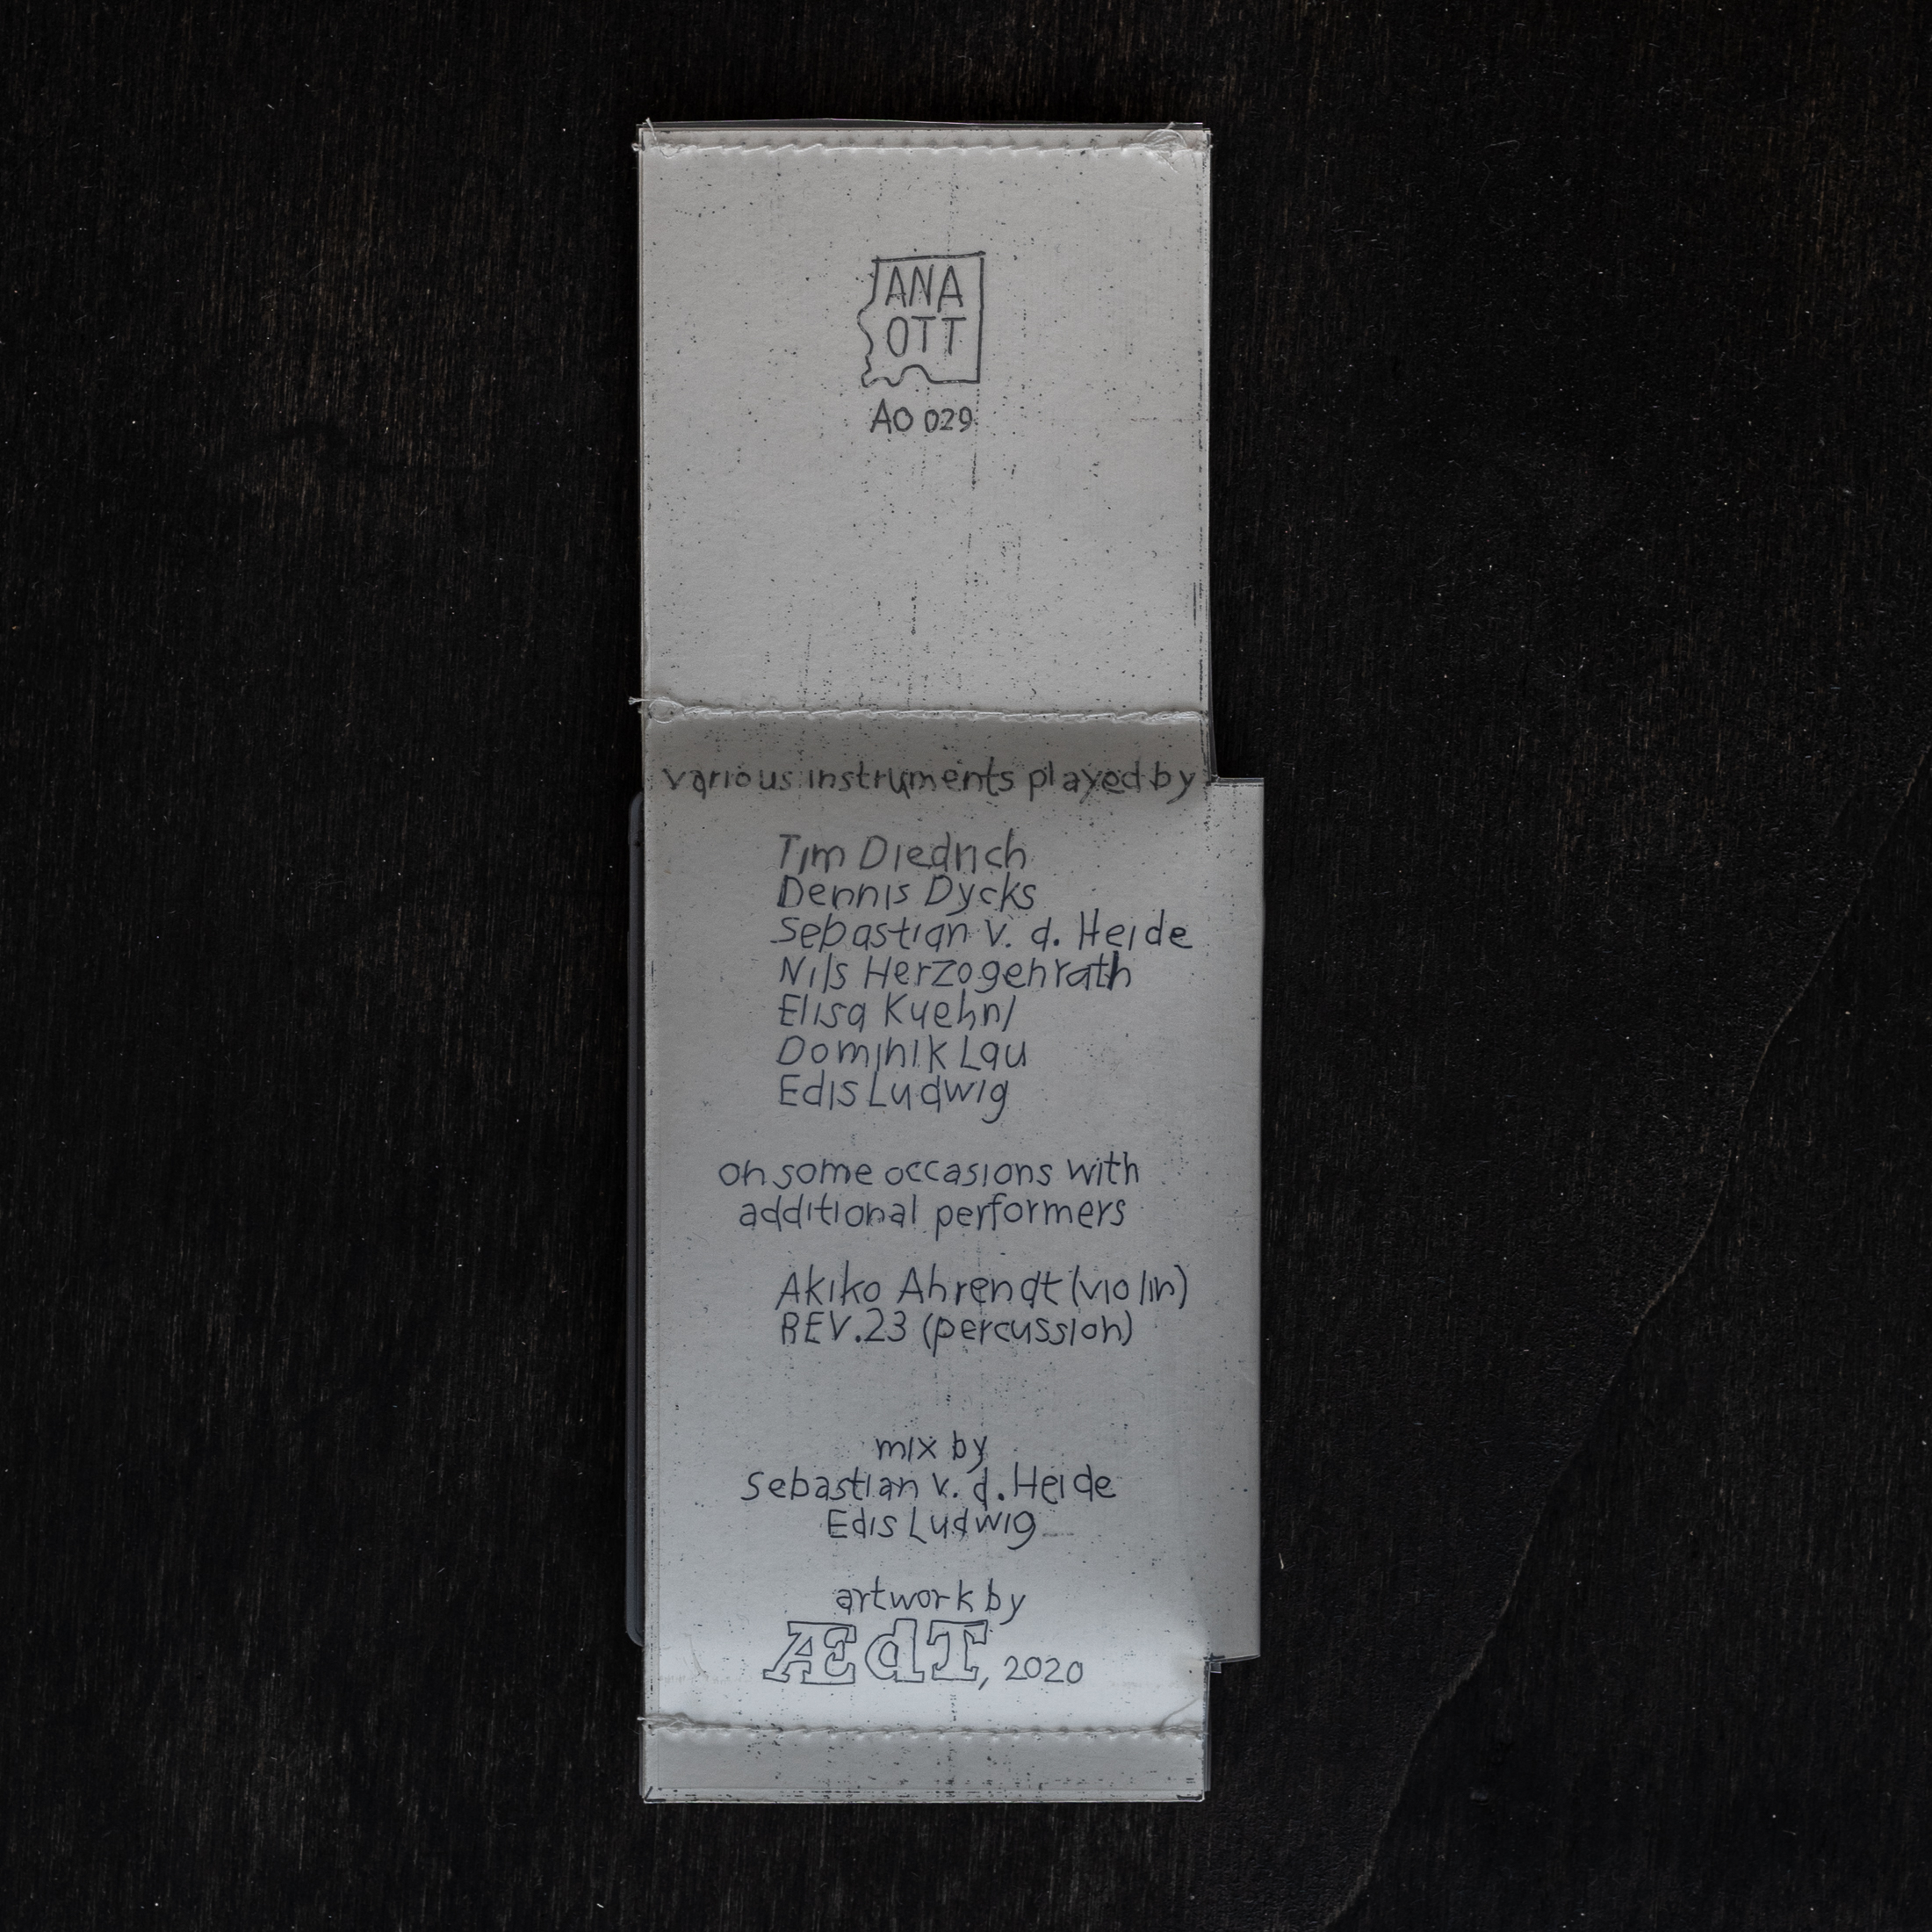 ANA
OTT
AO 029
various instruments played by
Tim Diedrich
Dennis Dycks
Sebastian v. d. Heide
Nils Herzogenrath
Elisa Kuehnl
Dominik Lau
Edis Ludwig
on some occasions with
additional performers
Akiko Ahrendt (violin)
REV.23 (percussion)
mix by
Sebastian v. d. Heide
Edis Ludwig
artwork by
ÆdT, 2020